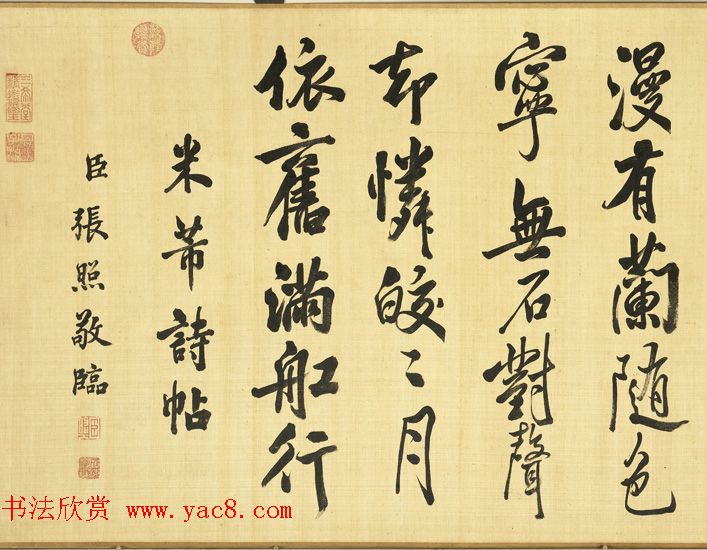 漫有蘭随色
寧無石對聲
却憐皎〻月
依舊滿舡行
米芾詩帖
臣張照敬臨
书法欣赏 www.yac8.com